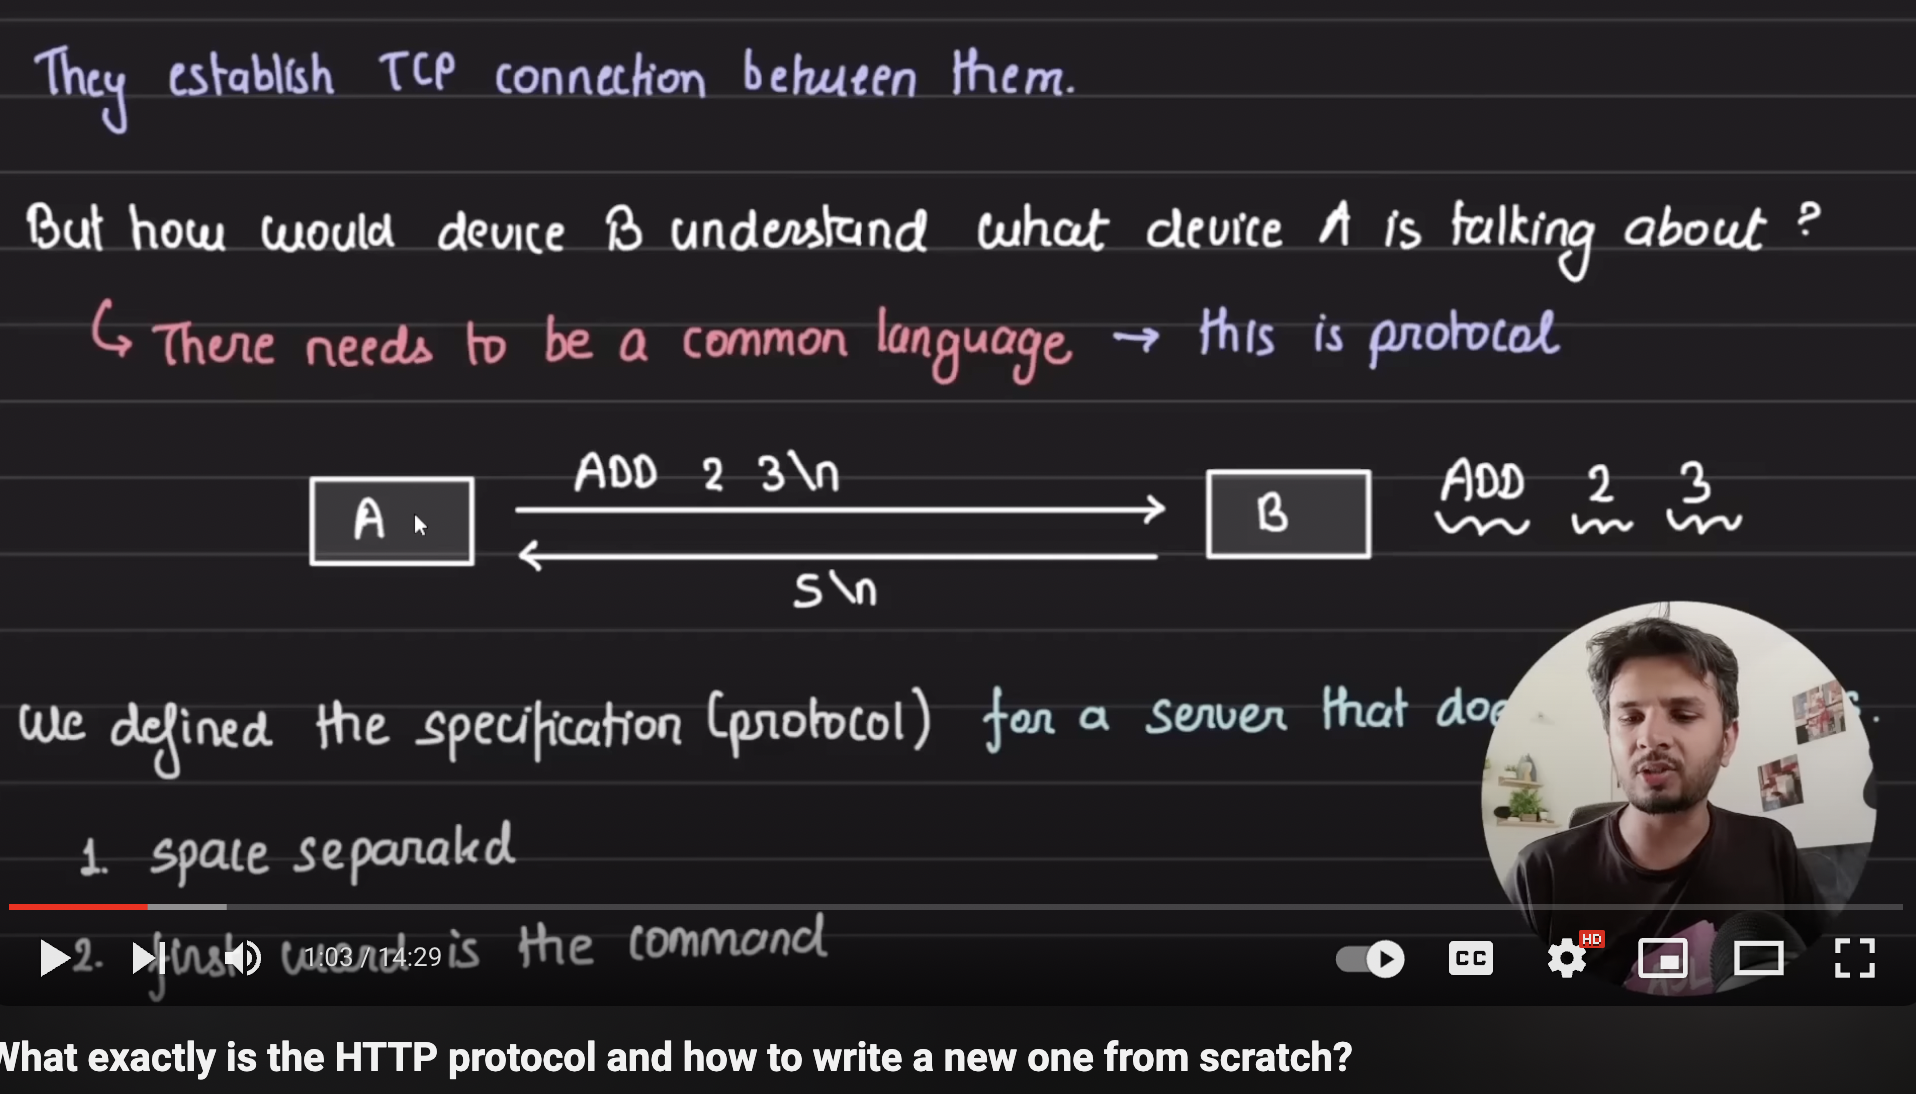 They establish TCP connection between them.
But how would device B understand what device A is talking about ?
↳ There needs to be a common language → this is protocol
ADD 2 3\n
A
B
ADD 2 3
5\n
We defined the specification (protocol) for a server that
1. space separated
2. first word is the command
1:03 / 14:29
CC
HD
What exactly is the HTTP protocol and how to write a new one from scratch?